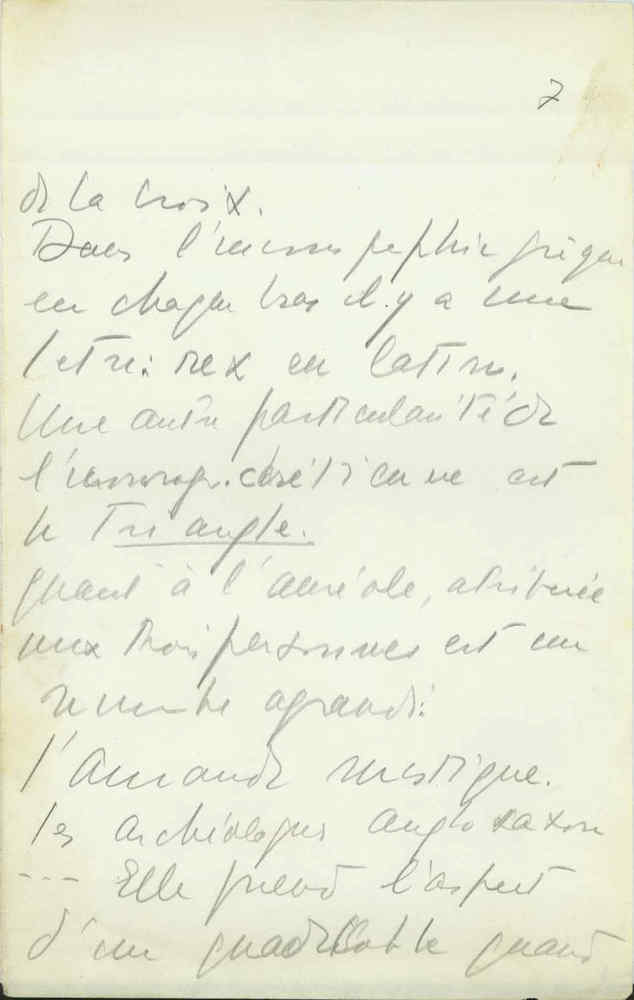 7
de la croix.
Dans l'iconographie grèque
en chaque bras il y a une
lettre: rex en latin.
Une autre particularité de
l'iconogr. chrétienne est
le Triangle.
quant à l'auréole, atribuée
aux trois personnes est un
nimbe agrandi:
l'Amande mystique.
les archéologues anglo saxon
--- Elle prend l'aspect
d'un quadrilobe quand